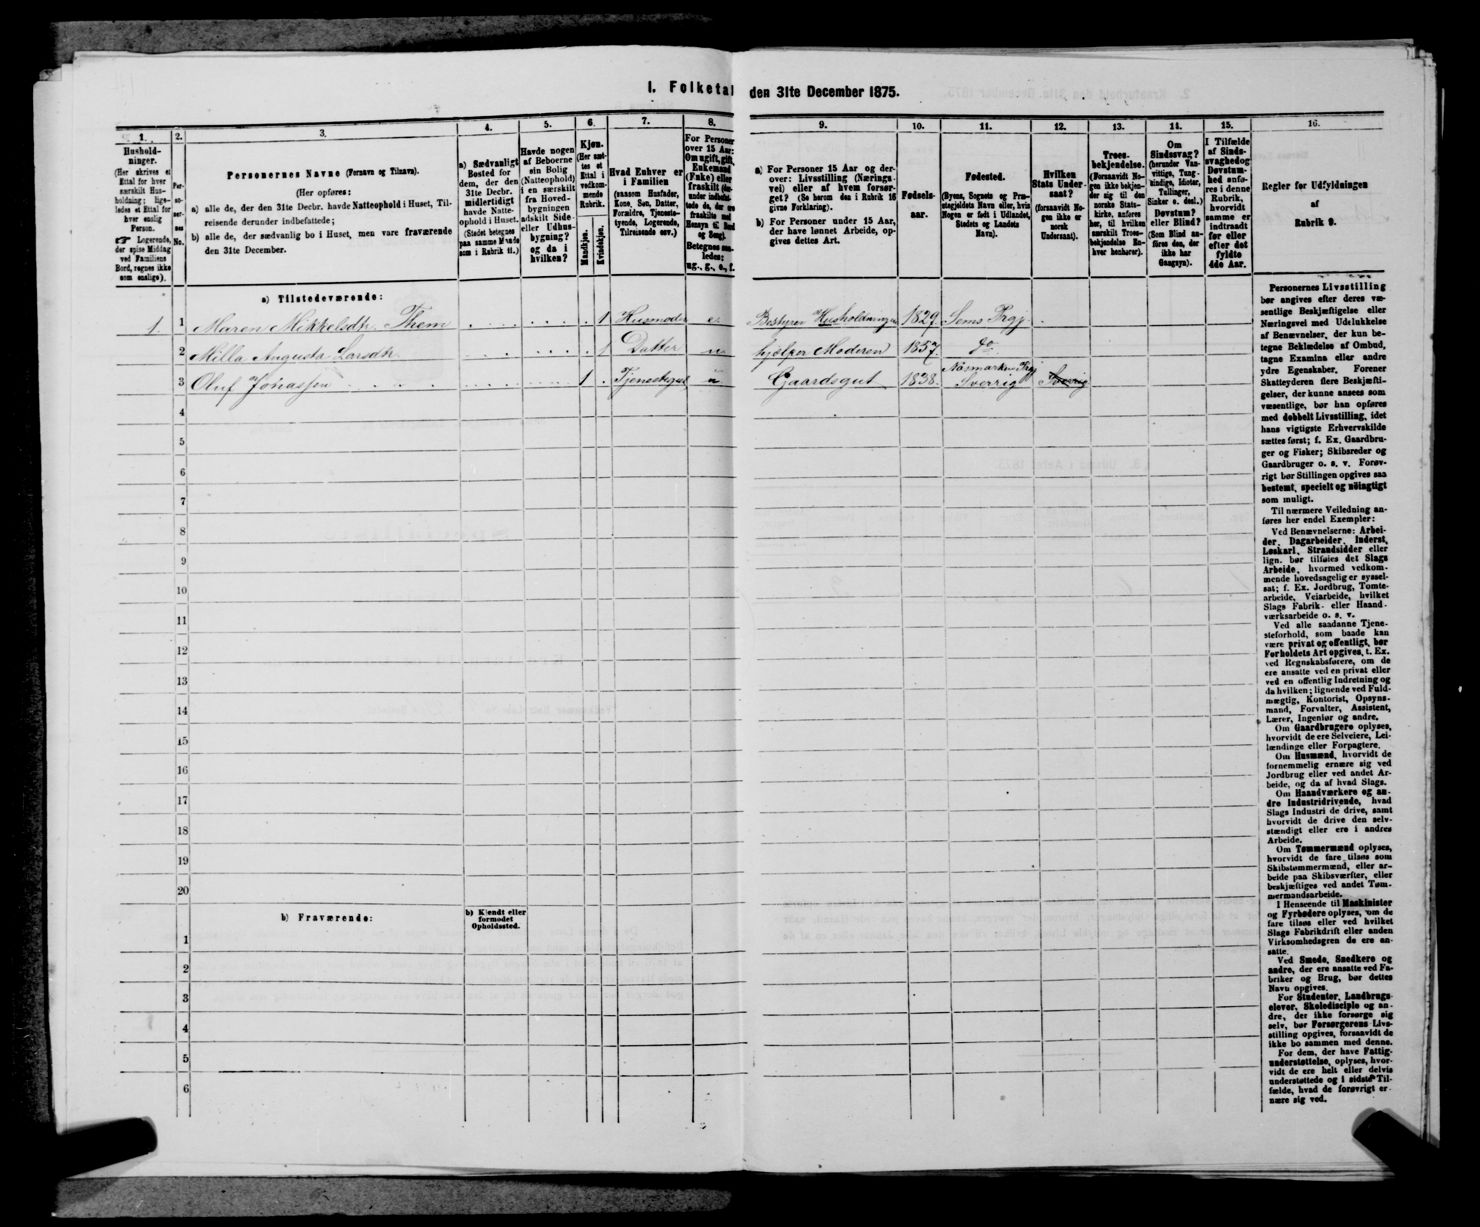 I. Folketal den 31te December 1875.
1.
Hushold-
ninger.
(Her skrives et
Ettal for hver
særskilt Hus-
holdning; lige-
ledes et Ettal for
hver enslig
Person.
☞ Logerende,
der spise Middag
ved Familiens
Bord, regnes ikke
som enslige).
2.
Per-
so-
ner-
nes
No.
3.
Personernes Navne (Fornavn og Tilnavn).
(Her opføres:
a) alle de, der den 31te Decbr. havde Natteophold i Huset, Til-
reisende derunder indbefattede;
b) alle de, der sædvanlig bo i Huset, men vare fraværende
den 31te December.
4.
a) Sædvanligt
Bosted for
dem, der den
31te Decbr.
midlertidigt
havde Natte-
ophold i Huset.
(Stedet betegnes
paa samme Maade
som i Rubrik 11.)
5.
Havde nogen
af Beboerne
sin Bolig
(Natteophold)
i en særskilt
fra Hoved-
bygningen
adskilt Side-
eller Udhus-
bygning?
og da i
hvilken?
6.
Kjøn.
(Her sæt-
tes et
Ettal i
vedkom-
mende
Rubrik.
Mandkjøn.
Kvindekjøn.
7.
Hvad Enhver er
i Familien
(saasom Husfader,
Kone, Søn, Datter,
Forældre, Tjeneste-
tyende, Logerende,
Tilreisende osv.)
8.
For Personer
over 15 Aar:
Om ugift, gift,
Enkemand
(Enke) eller
fraskilt
Betegnes saa-
ledes:
ug., g., e., f.
9.
a) For Personer 15 Aar og der-
over: Livsstilling (Nærings-
vei) eller af hvem forsør-
get? (Se herom den i Rubrik 16
givne Forklaring).
b) For Personer under 15 Aar,
der have lønnet Arbeide, op-
gives dettes Art.
10.
Fødsels-
aar.
11.
Fødested.
(Byens, Sognets og Præ-
stegjeldets Navn eller, hvis
Nogen er født i Udlandet,
Stedets og Landets
Navn).
12.
Hvilken
Stats Under-
saat?
(forsaavidt No-
gen ikke er
norsk
Undersaat).
13.
Troes-
bekjendelse.
(Forsaavidt No-
gen ikke bekjen-
der sig til den
norske Stats-
kirke, anføres
her, til hvilken
særskilt Troes-
bekjendelse En-
hver henhører).
14.
Om
Sindssvag?
(herunder Van-
vittige, Tung-
sindige, Idioter,
Tullinger,
Sinker o. desl.)
Døvstum?
eller Blind?
(Som Blind an-
føres den, der
ikke har
Gangsyn).
15.
I Tilfælde
af Sinds-
svaghed og
Døvstum-
hed anfø-
res i denne
Rubrik,
hvorvidt
samme er
indtraadt
før eller
efter det
fyldte
4de Aar.
16.
Regler for Udfyldningen
af
Rubrik 9.
a) Tilstedeværende:
1. 1 Maren Mikkelsdtr. Them 1 Husmoder e. Bestyrer Husholdningen 1829. Sems Prgj.
2 Milla Augusta Larsdtr. 1 Datter hjelper Moderen 1857. do
3 Oluf Jonassen 1 Tjenestegut u Gaardsgut 1838. Sverrig Sverrig
4
5
6
7
8
9
10
11
12
13
14
15
16
17
18
19
20
b) Fraværende:
b) Kjendt eller
formodet
Opholdssted.
1
2
3
4
5
6
Personernes Livsstilling
bør angives efter deres væ-
sentlige Beskjæftigelse eller
Næringsvei med Udelukkelse
af Benævnelser, der kun be-
tegne Beklædelse af Ombud,
tagne Examina eller andre
ydre Egenskaber. Forener
Skatteyderen flere Beskjæfti-
gelser, der kunne ansees som
væsentlige, bør han opføres
med dobbelt Livsstilling, idet
hans vigtigste Erhvervskilde
sættes først; f. Ex. Gaardbru-
ger og Fisker; Skibsreder og
Gaardbruger o. s. v. Forøv-
rigt bør Stillingen opgives saa
bestemt, specielt og nøiagtigt
som muligt.
Til nærmere Veiledning an-
føres her endel Exempler:
Ved Benævnelserne: Arbei-
der, Dagarbeider, Inderst,
Løskarl, Strandsidder eller
lign. bør tilføies det Slags
Arbeide, hvormed vedkom-
mende hovedsagelig er syssel-
sat; f. Ex. Jordbrug, Tomte-
arbeide, Veiarbeide, hvilket
Slags Fabrik- eller Haand-
værksarbeide o. s. v.
Ved alle saadanne Tjene-
steforhold, som baade kan
være privat og offentligt, bør
Forholdets Art opgives, t. Ex.
ved Regnskabsførere, om de
ere ansatte ved en privat eller
ved en offentlig Indretning og
da hvilken; lignende ved Fuld-
mægtig, Kontorist, Opsyns-
mand, Forvalter, Assistent,
Lærer, Ingeniør og andre.
Om Gaardbrugere oplyses,
hvorvidt de ere Selveiere, Lei-
lændinge eller Forpagtere.
Om Husmænd, hvorvidt de
fornemmelig ernære sig ved
Jordbrug eller ved andet Ar-
beide, og da af hvad Slags.
Om Haandværkere og an-
dre Industridrivende, hvad
Slags Industri de drive, samt
hvorvidt de drive den selv-
stændigt eller ere i andres
Arbeide.
Om Tømmermænd oplyses,
hvorvidt de fare tilsøs som
Skibstømmermænd, eller ar-
beide paa Skibsværfter, eller
beskjæftiges ved andet Tøm-
mermandsarbeide.
I Henseende til Maskinister
og Fyrbødere oplyses, om de
fare tilsøs eller ved hvilket
Slags Fabrikdrift eller anden
Virksomhedsgren de ere an-
satte.
Ved Smede, Snedkere og
andre, der ere ansatte ved Fa-
briker og Brug, bør dettes
Navn opgives.
For Studenter, Landbrugs-
elever, Skoledisciple og an-
dre, der ikke forsørge sig
selv, bør Forsørgerens Livs-
stilling opgives, forsaavidt de
ikke bo sammen med denne.
For dem, der have Fattig-
understøttelse, oplyses, hvor-
vidt de ere helt eller delvis
understøttede og i sidste Til-
fælde, hvad de forøvrigt er-
nære sig ved.